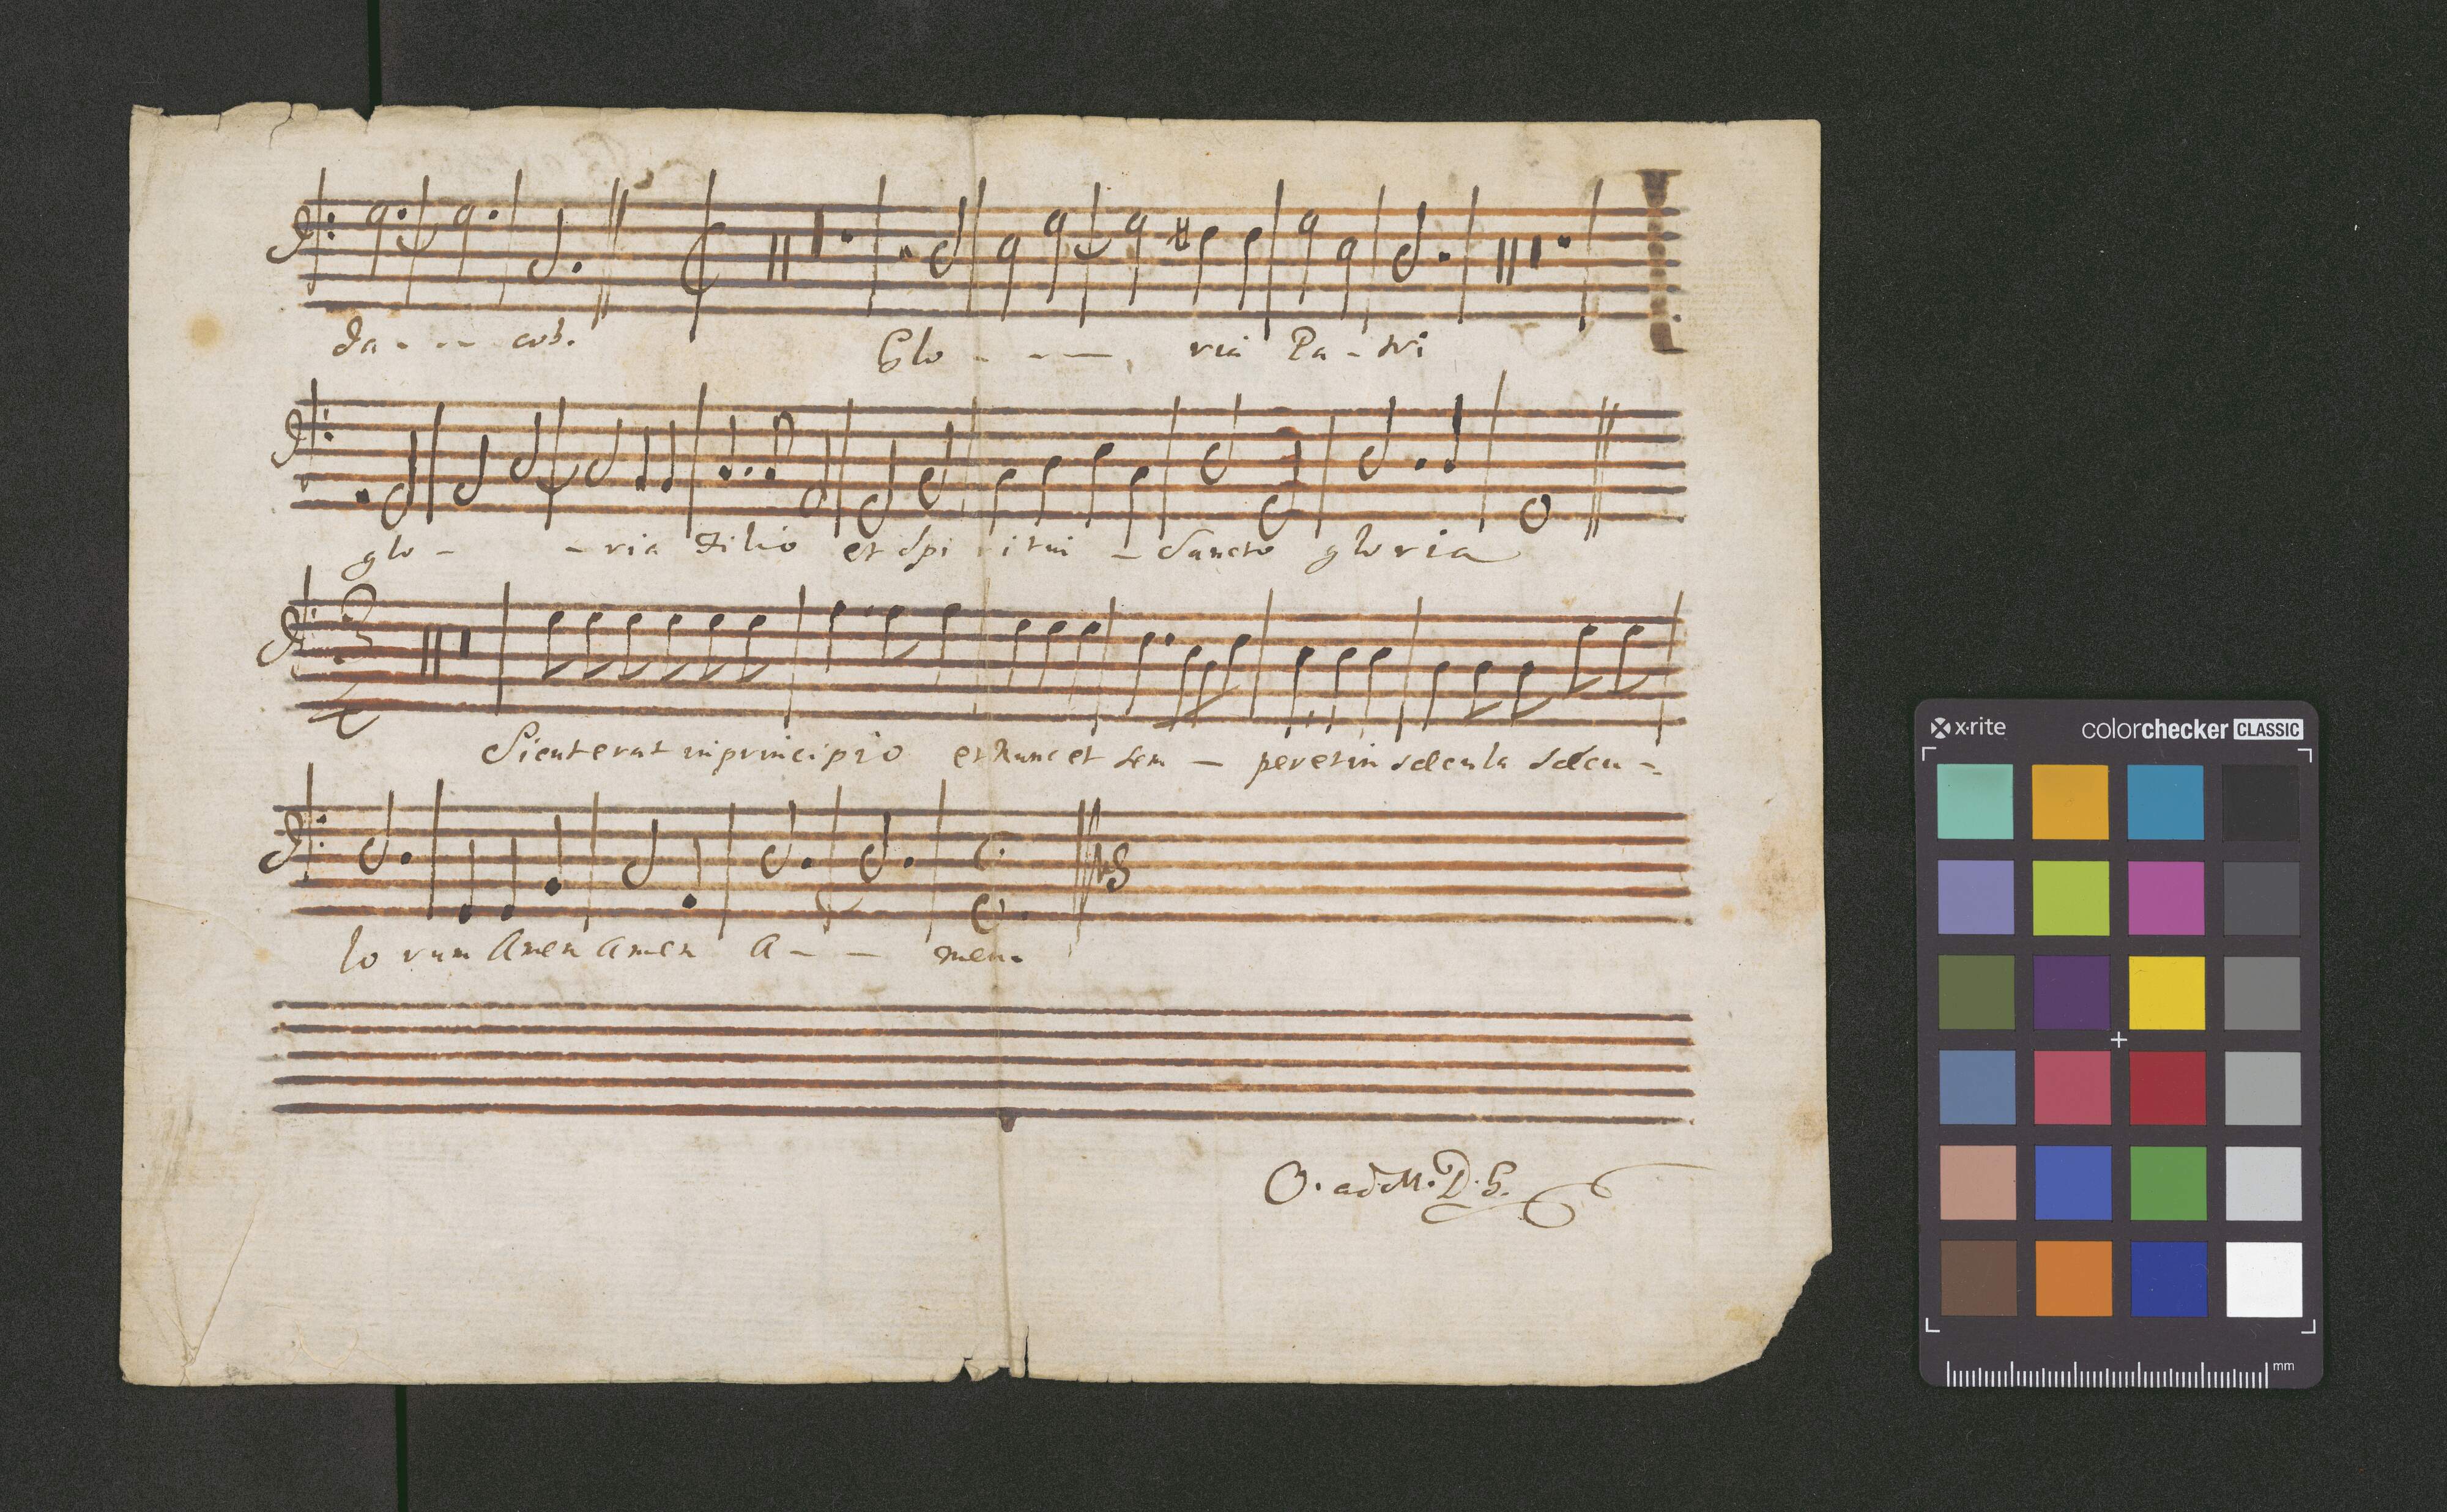 Ja - - - cob. Glo - - - ria Pa - tri
glo - - ria Filio et Spi ritui - Sancto gloria
Sicut erat in principio et Nunc et sem - per et in sæcula sæcu -
lo rum Amen amen a - - men.
O. ad M. D. G.
x·rite colorchecker CLASSIC
mm